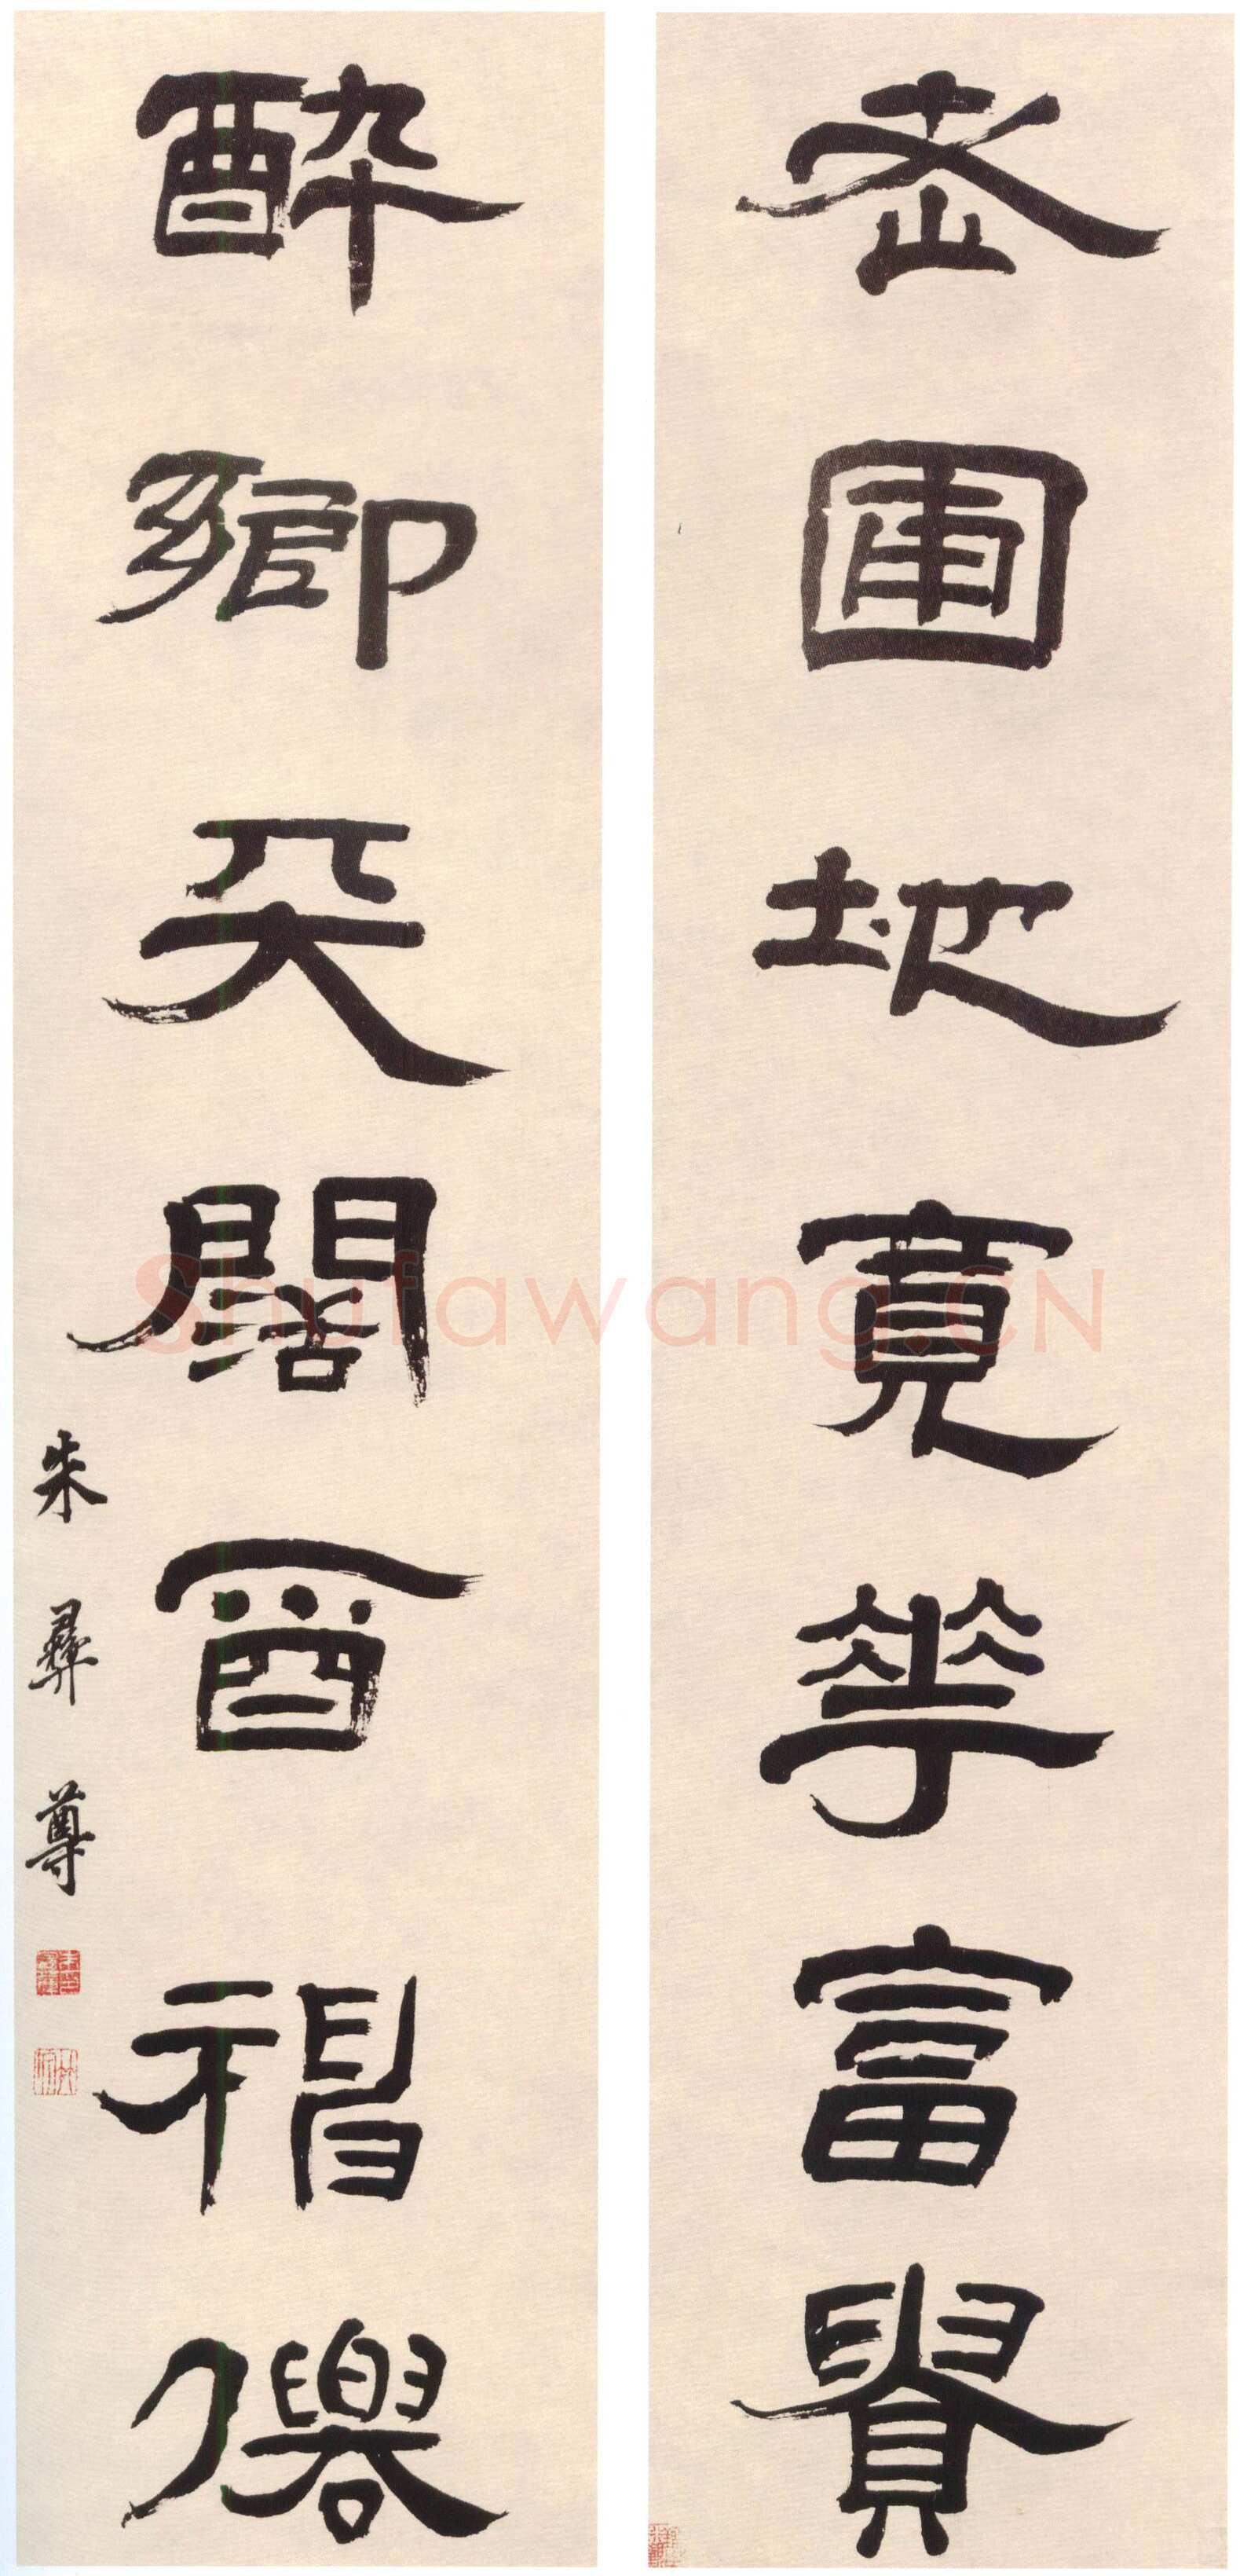 老圃地寬華富貴
醉鄉天闊酉神僊
朱彝尊
Shufawang.CN